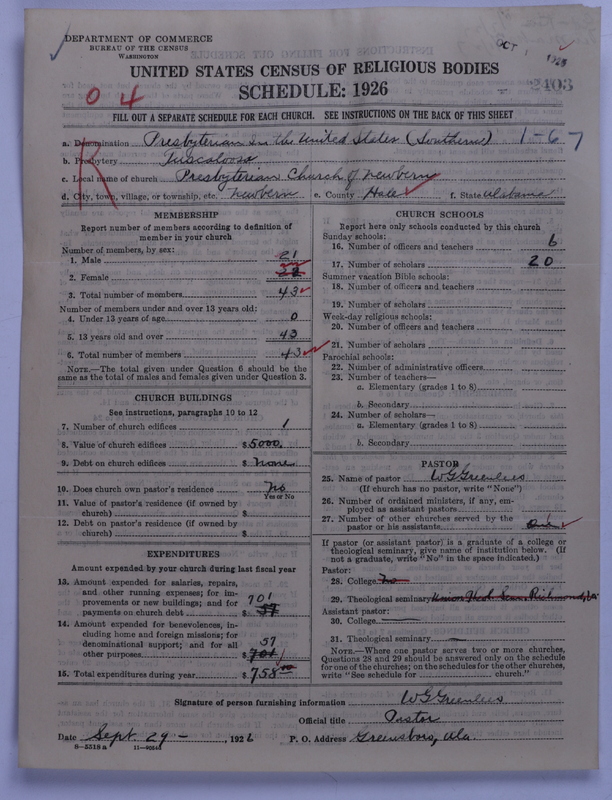 DEPARTMENT OF COMMERCE
BUREAU OF THE CENSUS
WASHINGTON
OCT
2403
UNITED STATES CENSUS OF RELIGIOUS BODIES
SCHEDULE: 1926
0 4
R
FILL OUT A SEPARATE SCHEDULE FOR EACH CHURCH. SEE INSTRUCTIONS ON THE BACK OF THIS SHEET
a. Denomination Presbyterian in the United States (Southern) 1-67
b. Presbytery Tuscaloosa
c. Local name of church Presbyterian Church of Newbern
d. City, town, village, or township, etc. Newbern e. County Hale f. State Alabama
MEMBERSHIP
Report number of members according to definition of
member in your church
Number of members, by sex:
1. Male 21
2. Female 22
3. Total number of members 43
Number of members under and over 13 years old:
4. Under 13 years of age 0
5. 13 years old and over 43
6. Total number of members 43
NOTE.—The total given under Question 6 should be the
same as the total of males and females given under Question 3.
CHURCH BUILDINGS
See instructions, paragraphs 10 to 12
7. Number of church edifices 1
8. Value of church edifices $ 5000.
9. Debt on church edifices $ None
10. Does church own pastor's residence No
Yes or No
11. Value of pastor's residence (if owned by
church) $
12. Debt on pastor's residence (if owned by
church) $
EXPENDITURES
Amount expended by church during last fiscal year
13. Amount expended for salaries, repairs,
and other running expenses; for im-
provements or new buildings; and for 701
payments on church debt $ 57
14. Amount expended for benevolences, in-
cluding home and foreign missions; for
denominational support; and for all 57
other purposes $ 701
15. Total expenditures during year $ 758.00
CHURCH SCHOOLS
Report here only schools conducted by this church
Sunday schools:
16. Number of officers and teachers 6
17. Number of scholars 20
Summer vacation Bible schools:
18. Number of officers and teachers
19. Number of scholars
Week-day religious schools:
20. Number of officers and teachers
21. Number of scholars
Parochial schools:
22. Number of administrative officers
23. Number of teachers—
a. Elementary (grades 1 to 8)
b. Secondary
24. Number of scholars—
a. Elementary (grades 1 to 8)
b. Secondary
PASTOR
25. Name of pastor W G Greenlees
(If church has no pastor, write "None")
26. Number of ordained ministers, if any, em-
ployed as assistant pastors
27. Number of other churches served by the
pastor or his assistants One
If pastor (or assistant pastor) is a graduate of a college or
theological seminary, give name of institution below. (If
not a graduate, write "No" in the space indicated.)
Pastor:
28. College No
29. Theological seminary Union Theol Sem. Richmond, Va
Assistant pastor:
30. College
31. Theological seminary
NOTE.—Where one pastor serves two or more churches,
Questions 28 and 29 should be answered only on the schedule
for one of the churches; on the schedules for the other churches,
write "See schedule for church."
Signature of person furnishing information W G Greenlees
Official title Pastor
Date Sept. 29 - , 1926 P. O. Address Greensboro, Ala.
8-5518 a